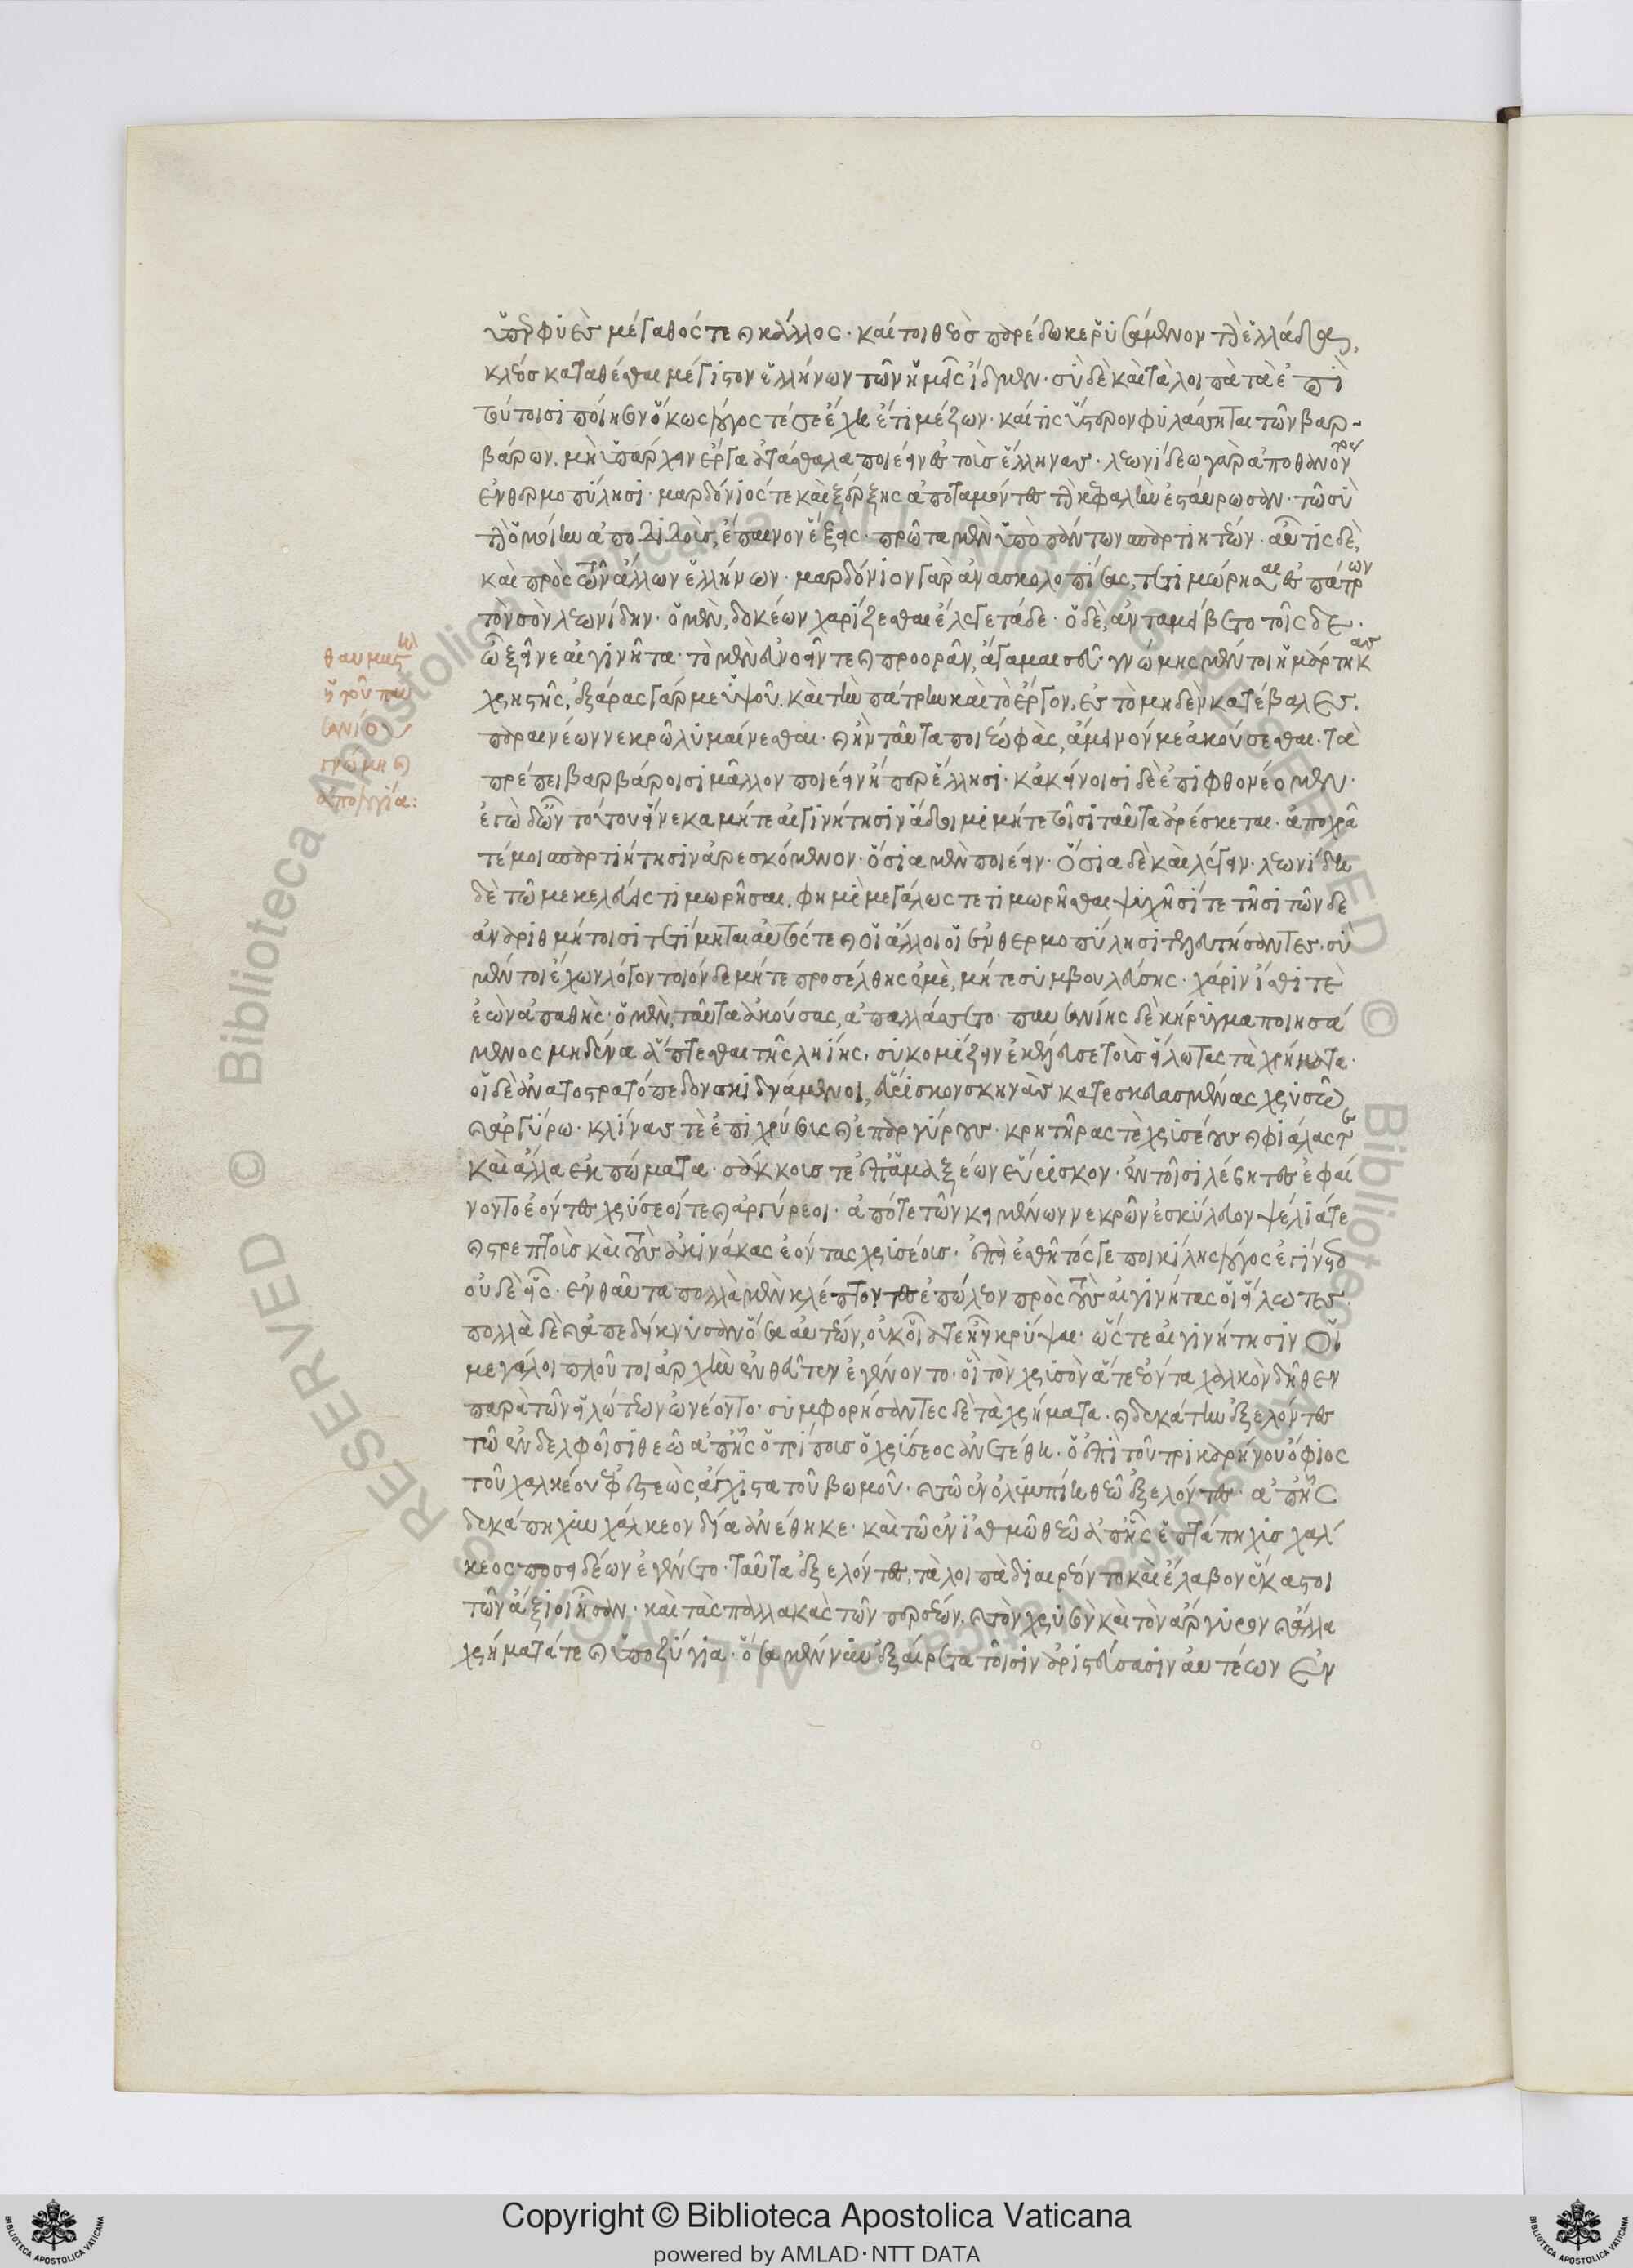 ὑπερφυὲς μέγαθός τε καὶ κάλλος· καί τοι θεὸς παρέδωκε ῥυσάμενον τὴν ἑλλάδα,
κλέος καταθέσθαι μέγιστον ἑλλήνων τῶν ἡμεῖς ἴδμεν· σὺ δὲ καὶ τὰ λοιπὰ τὰ ἐπὶ
τούτοισι ποίησον ὅκως λόγος τέ σε ἔχῃ ἔτι μέζων· καί τις ὕστερον φυλάσσηται τῶν βαρ-
βάρων, μὴ ὑπάρχειν ἔργα ἀτάσθαλα ποιέειν ἐς τοὺς ἕλληνας· λεωνίδεω γὰρ ἀποθανόντος
ἐν θερμοπύλησι· μαρδόνιός τε καὶ ξέρξης ἀποταμόντες τὴν κεφαλὴν ἐσταύρωσαν· τῷ σὺ
τὴν ὁμοίην ἀποδιδοὺς, ἔπαινον ἕξεις· πρῶτα μὲν ὑπὸ πάντων σπαρτιητέων· αὖτις δὲ,
καὶ πρὸς τῶν ἄλλων ἑλλήνων· μαρδόνιον γὰρ ἀνασκολοπίσας, τετιμώρησαι ἐς πάτρων
τὸν σὸν λεωνίδην· ὁ μὲν, δοκέων χαρίζεσθαι ἔλεγε τάδε· ὁ δὲ, ἀνταμείβετο τοῖς δε·
ὦ ξεῖνε αἰγινῆτα· τὸ μὲν εὐνοεῖν τε καὶ προορᾶν, ἄγαμαι σεῦ· γνώμης μέντοι ἡμάρτηκας
χρηστῆς, ἐξάρας γάρ με ὑψοῦ, καὶ τὴν πάτρην καὶ τὸ ἔργον, ἐς τὸ μηδὲν κατέβαλες,
παραινέων νεκρῷ λυμαίνεσθαι· καὶ ἢν ταῦτα ποιέω φὰς, ἄμεινόν με ἀκούσεσθαι· τὰ
πρέπει βαρβάροισι μᾶλλον ποιέειν ἤπερ ἕλλησι· κἀκείνοισι δὲ ἐπιφθονέομεν·
ἐγὼ δ᾽ ὦν τούτου εἵνεκα μήτε αἰγινήτησιν ἅδοιμι μήτε τοῖσι ταῦτα ἀρέσκεται· ἀποχρᾷ
τέ μοι σπαρτιήτησιν ἀρεσκόμενον· ὅσια μὲν ποιέειν· ὅσια δὲ καὶ λέγειν· λεωνίδῃ
δὲ τῷ με κελεύεις τιμωρῆσαι, φημὶ μεγάλως τετιμωρῆσθαι ψυχῇσί τε τῇσι τῶνδε
ἀναριθμήτοισι τετίμηται αὐτός τε καὶ οἱ ἄλλοι οἱ ἐν θερμοπύλησι τελευτήσαντες· σὺ
μέντοι ἔχων λόγον τοιόνδε μήτε προσέλθῃς ἐμὲ, μήτε συμβουλεύσῃς· χάριν ἴσθι τὲ
ἐὼν ἀπαθής· ὁ μὲν, ταῦτα ἀκούσας, ἀπαλλάσσετο· παυσανίης δὲ κήρυγμα ποιησά
μενος μηδένα ἅπτεσθαι τῆς ληίης, συγκομίζειν ἐκέλευσε τοὺς εἵλωτας τὰ χρήματα·
οἱ δὲ ἀνὰ τὸ στρατόπεδον σκιδνάμενοι, εὕρισκον σκηνὰς κατεσκευασμένας χρυσῷ
καὶ ἀργύρῳ· κλίνας τὲ ἐπιχρύσους καὶ ἐπαργύρους· κρητῆρας τὲ χρυσέους καὶ φιάλας τε
καὶ ἄλλα ἐκπώματα· σάκκους τε ἐπ᾽ ἁμαξέων εὕρισκον· ἐν τοῖσι λέβητες ἐφαί
νοντο ἐόντες χρύσεοί τε καὶ ἀργύρεοι· ἀπό τε τῶν κειμένων νεκρῶν ἐσκύλευον ψέλιά τε
καὶ στρεπτοὺς καὶ τοὺς ἀκινάκας ἐόντας χρυσέους· ἐπεὶ ἐσθῆτός γε ποικίλης λόγος ἐγίνετο
οὐδὲ εἷς· ἐνθαῦτα πολλὰ μὲν κλέπτοντες ἐπώλεον πρὸς τοὺς αἰγινήτας οἱ εἵλωτες
πολλὰ δὲ καὶ ἀπεδείκνυσαν ὅσα αὐτέων, οὐκ οἷά τε ἦν κρύψαι· ὥς τε αἰγινήτησιν οἱ
μεγάλοι πλοῦτοι ἀρχὴν ἐνθεῦτεν ἐγένοντο· οἳ τὸν χρυσὸν ἅτε ἐόντα χαλκὸν δῆθεν
παρὰ τῶν εἱλώτεων ὠνέοντο· συμφορήσαντες δὲ τὰ χρήματα· καὶ δεκάτην ἐξελόντες
τῷ ἐν δελφοῖσι θεῷ ἀπ᾽ ἧς ὁ τρίπους ὁ χρύσεος ἀνετέθη· ὁ ἐπὶ τοῦ τρικαρήνου ὄφιος
τοῦ χαλκέου ἐφεστεὼς, ἄγχιστα τοῦ βωμοῦ· καὶ τῷ ἐν ὀλυμπίῃ θεῷ ἐξελόντες· ἀπ᾽ ἧς
δεκάπηχυν χάλκεον δία ἀνέθηκε· καὶ τῷ ἐν ἰσθμῷ θεῷ ἀπ᾽ ἧς ἑπτάπηχυς χάλ
κεος ποσειδέων ἐγένετο· ταῦτα ἐξελόντες, τὰ λοιπὰ διαιρέοντο καὶ ἔλαβον ἕκαστοι
τῶν ἄξιοι ἦσαν· καὶ τὰς παλλακὰς τῶν περσέων, καὶ τὸν χρυσὸν καὶ τὸν ἄργυρον καὶ ἄλλα
χρήματά τε καὶ ὑποζύγια· ὅσα μέν νυν ἐξαίρετα τοῖσιν ἀριστεύσασιν αὐτέων ἐν
θαυμαστὴ
ἡ τοῦ παυ
σανίου
γνώμη καὶ
ἀπολογία:
Copyright © Biblioteca Apostolica Vaticana
powered by AMLAD·NTT DATA